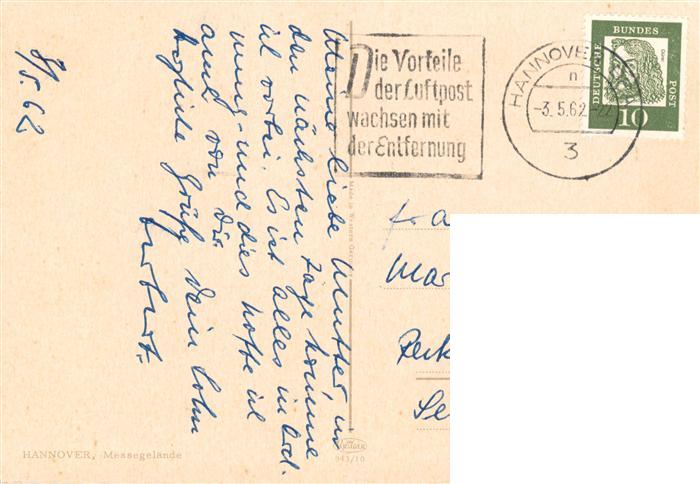 3/5. 62
Meine liebe Mutter in
den nächsten Tage komme
ich vorbei. Es ist alles in Ord-
nung - und dies hoffe ich
auch von Dir.
Herzliche Grüße Dein Sohn
Herbert.
Die Vorteile
der Luftpost
wachsen mit
der Entfernung
HANNOVER
n
-3.5.62-22
3
DEUTSCHE BUNDESPOST
Dürer
10
Made in Western Germany
Fra
Mar
Se
HANNOVER, Messegelände
943/10